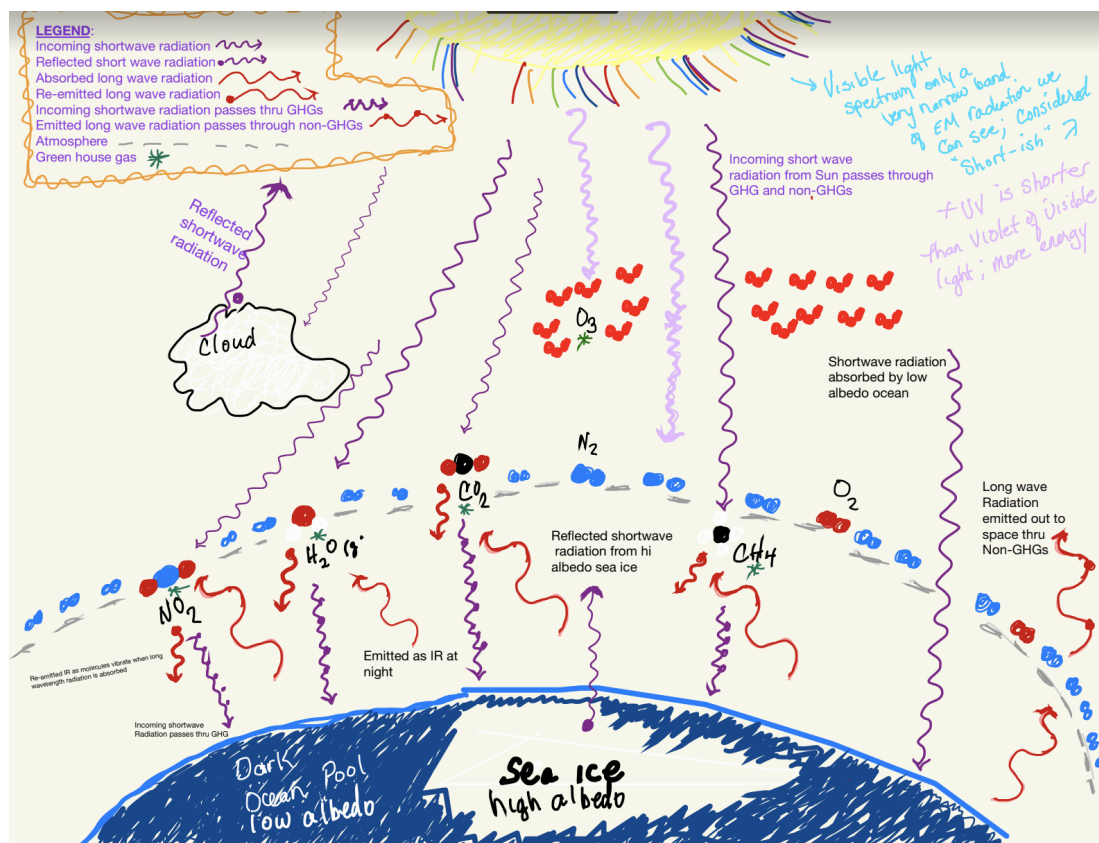 LEGEND:
Incoming shortwave radiation
Reflected short wave radiation
Absorbed long wave radiation
Re-emitted long wave radiation
Incoming shortwave radiation passes thru GHGs
Emitted long wave radiation passes through non-GHGs
Atmosphere
Green house gas
Visible light
spectrum only a
very narrow band
of EM radiation we
can see; considered
"Short-ish"
+ UV is shorter
than violet of visible
light; more energy
Incoming short wave
radiation from Sun passes through
GHG and non-GHGs
Reflected
shortwave
radiation
Cloud
O3
Shortwave radiation
absorbed by low
albedo ocean
N2
CO2
O2
Long wave
Radiation
emitted out to
space thru
Non-GHGs
H2O (g)
Reflected shortwave
radiation from hi
albedo sea ice
CH4
NO2
Re-emitted IR as molecules vibrate when long
wavelength radiation is absorbed
Emitted as IR at
night
Incoming shortwave
Radiation passes thru GHG
Dark
Ocean Pool
low albedo
Sea ice
high albedo